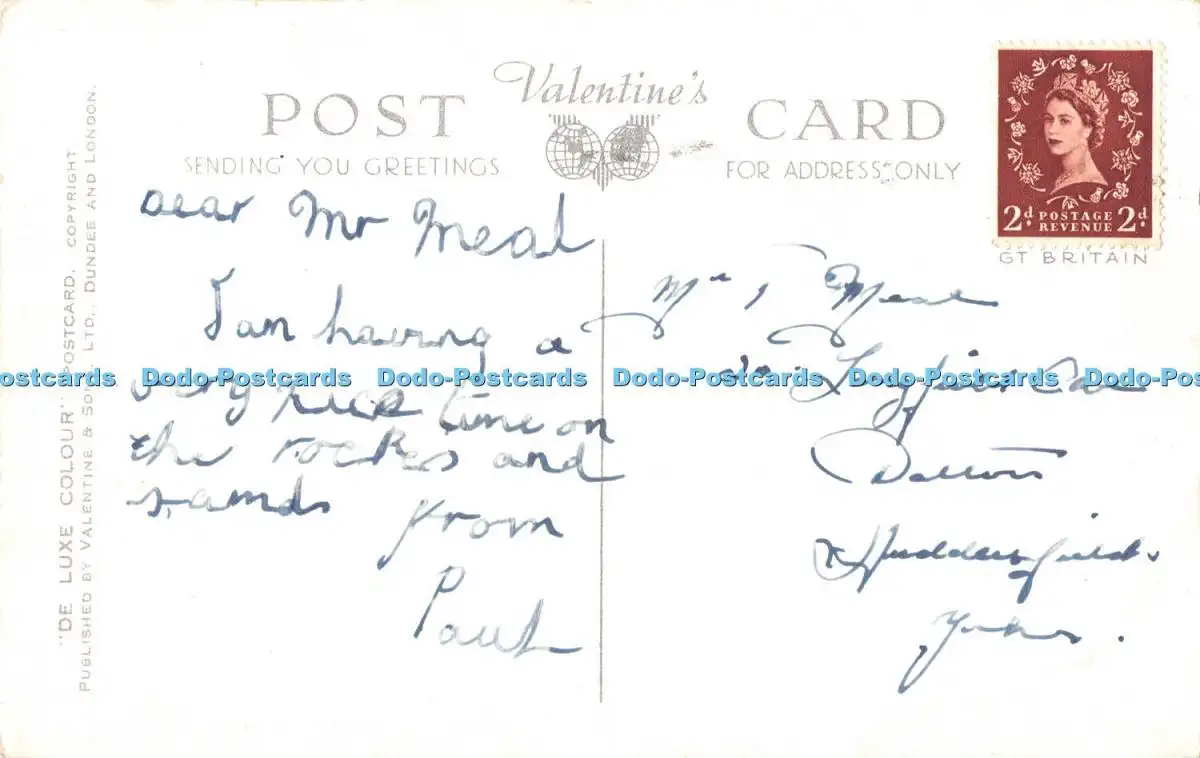 POST Valentine's CARD
SENDING YOU GREETINGS FOR ADDRESS ONLY
2d POSTAGE REVENUE 2d
GT BRITAIN
Dear Mr Meal
I am having a
very nice time on
the rocks and
sands from
Paul
Mr Meal
Dalton
Huddersfield
Yorks.
"DE LUXE COLOUR" POSTCARD. COPYRIGHT
PUBLISHED BY VALENTINE & SONS LTD., DUNDEE AND LONDON.
Dodo-Postcards Dodo-Postcards Dodo-Postcards Dodo-Postcards Dodo-Postcards Dodo-Postcards